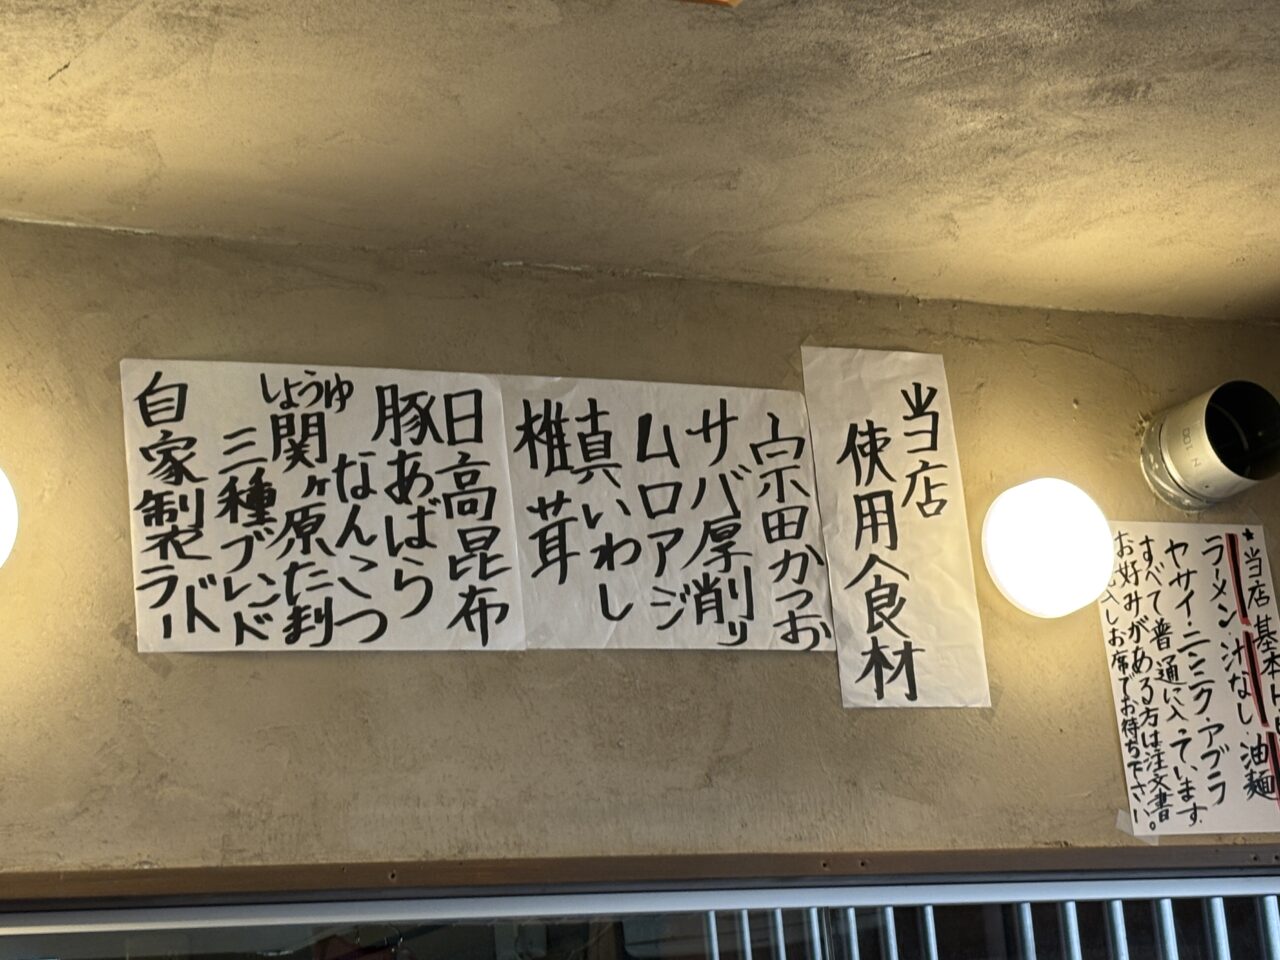 当店
使用食材
宗田かつお
サバ厚削り
ムロアジ
真いわし
椎茸
日高昆布
豚あばら
なんこつ
しょうゆ
関ヶ原たまり
三種ブレンド
自家製ラード
★当店基本
ラーメン・汁なし・油麺
ヤサイ・ニンニク・アブラ
すべて普通に入っています。
お好みがある方は注文書
入しお席でお待ち下さい。